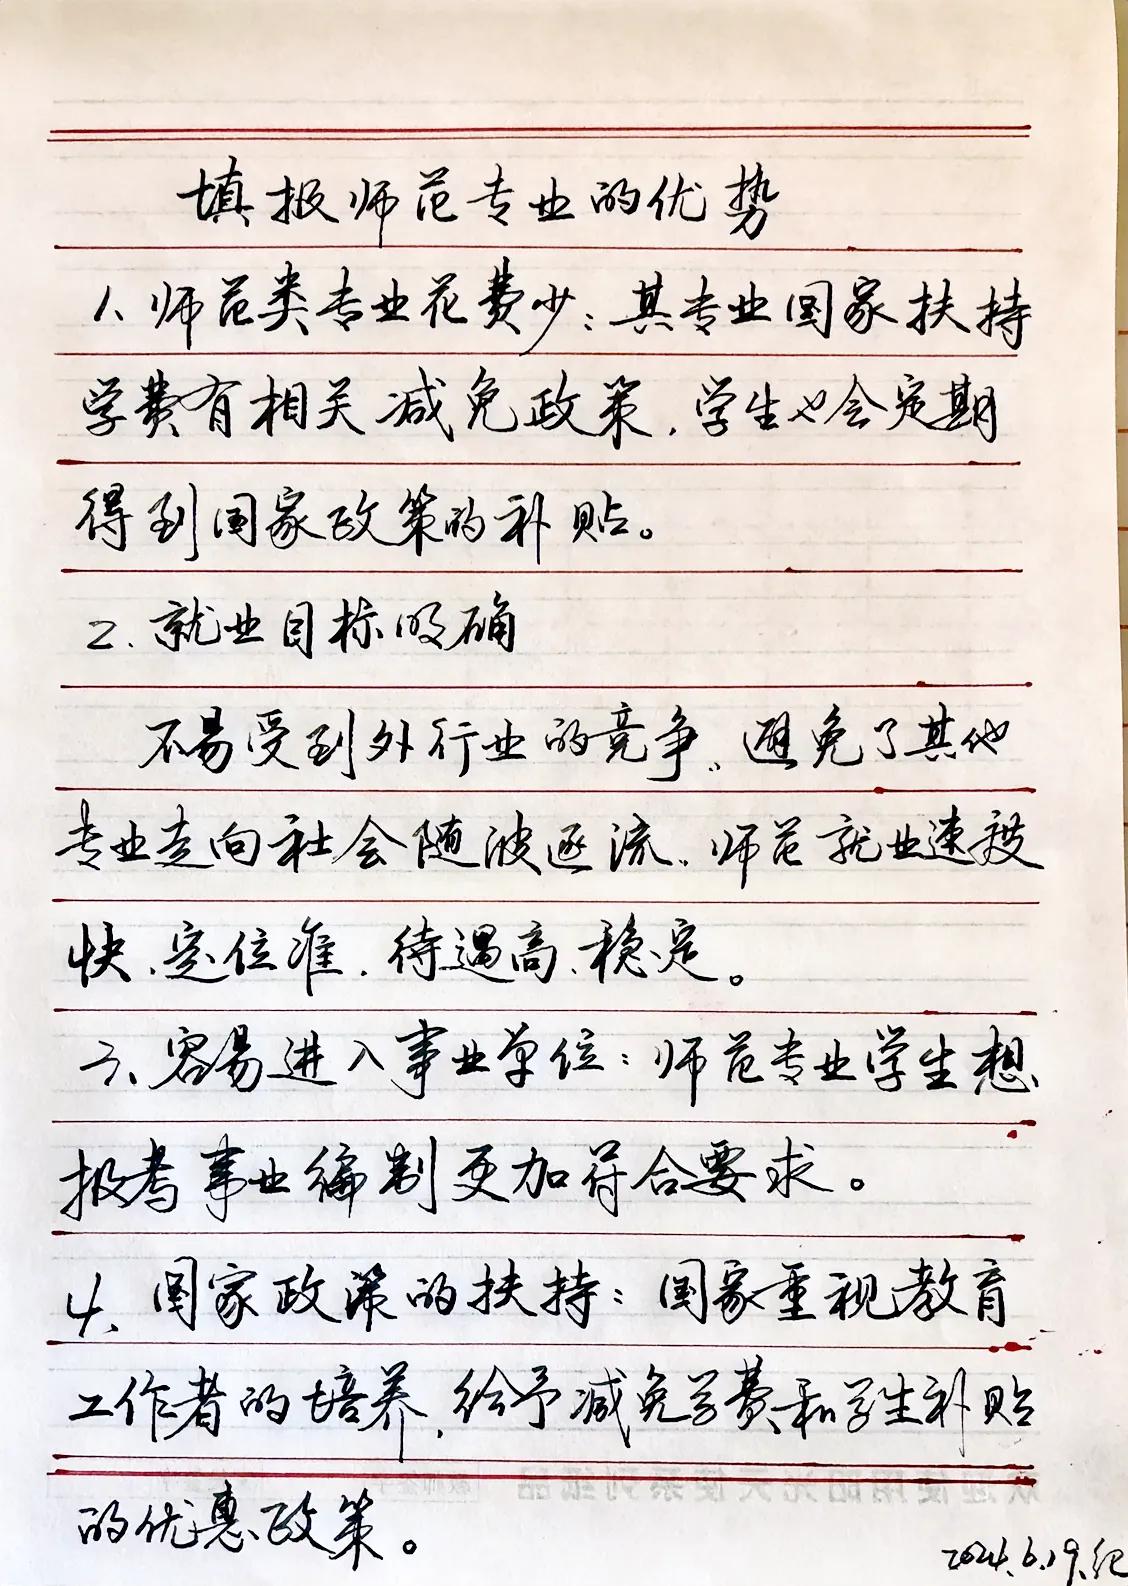 填报师范专业的优势
1、师范类专业花费少：其专业国家扶持
学费有相关减免政策，学生也会定期
得到国家政策的补贴。
2.就业目标明确
不易受到外行业的竞争，避免了其他
专业走向社会随波逐流，师范就业速度
快、定位准、待遇高、稳定。
三、容易进入事业单位：师范专业学生想
报考事业编制更加符合要求。
4、国家政策的扶持：国家重视教育
工作者的培养，给予减免学费和学生补贴
的优惠政策。
2024.6.19.纪